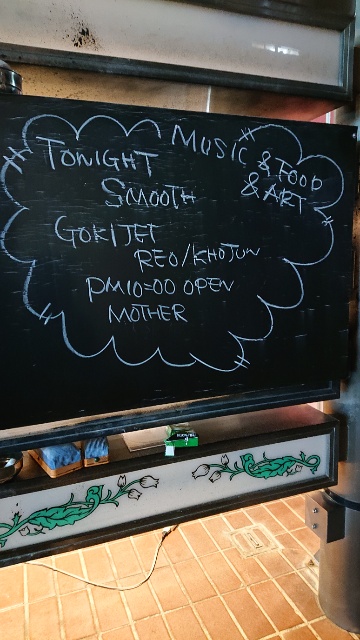 MUSIC & FOOD
& ART
TONIGHT
SMOOTH
GOKIJET
REO/KHOJUN
PM10=00 OPEN
MOTHER